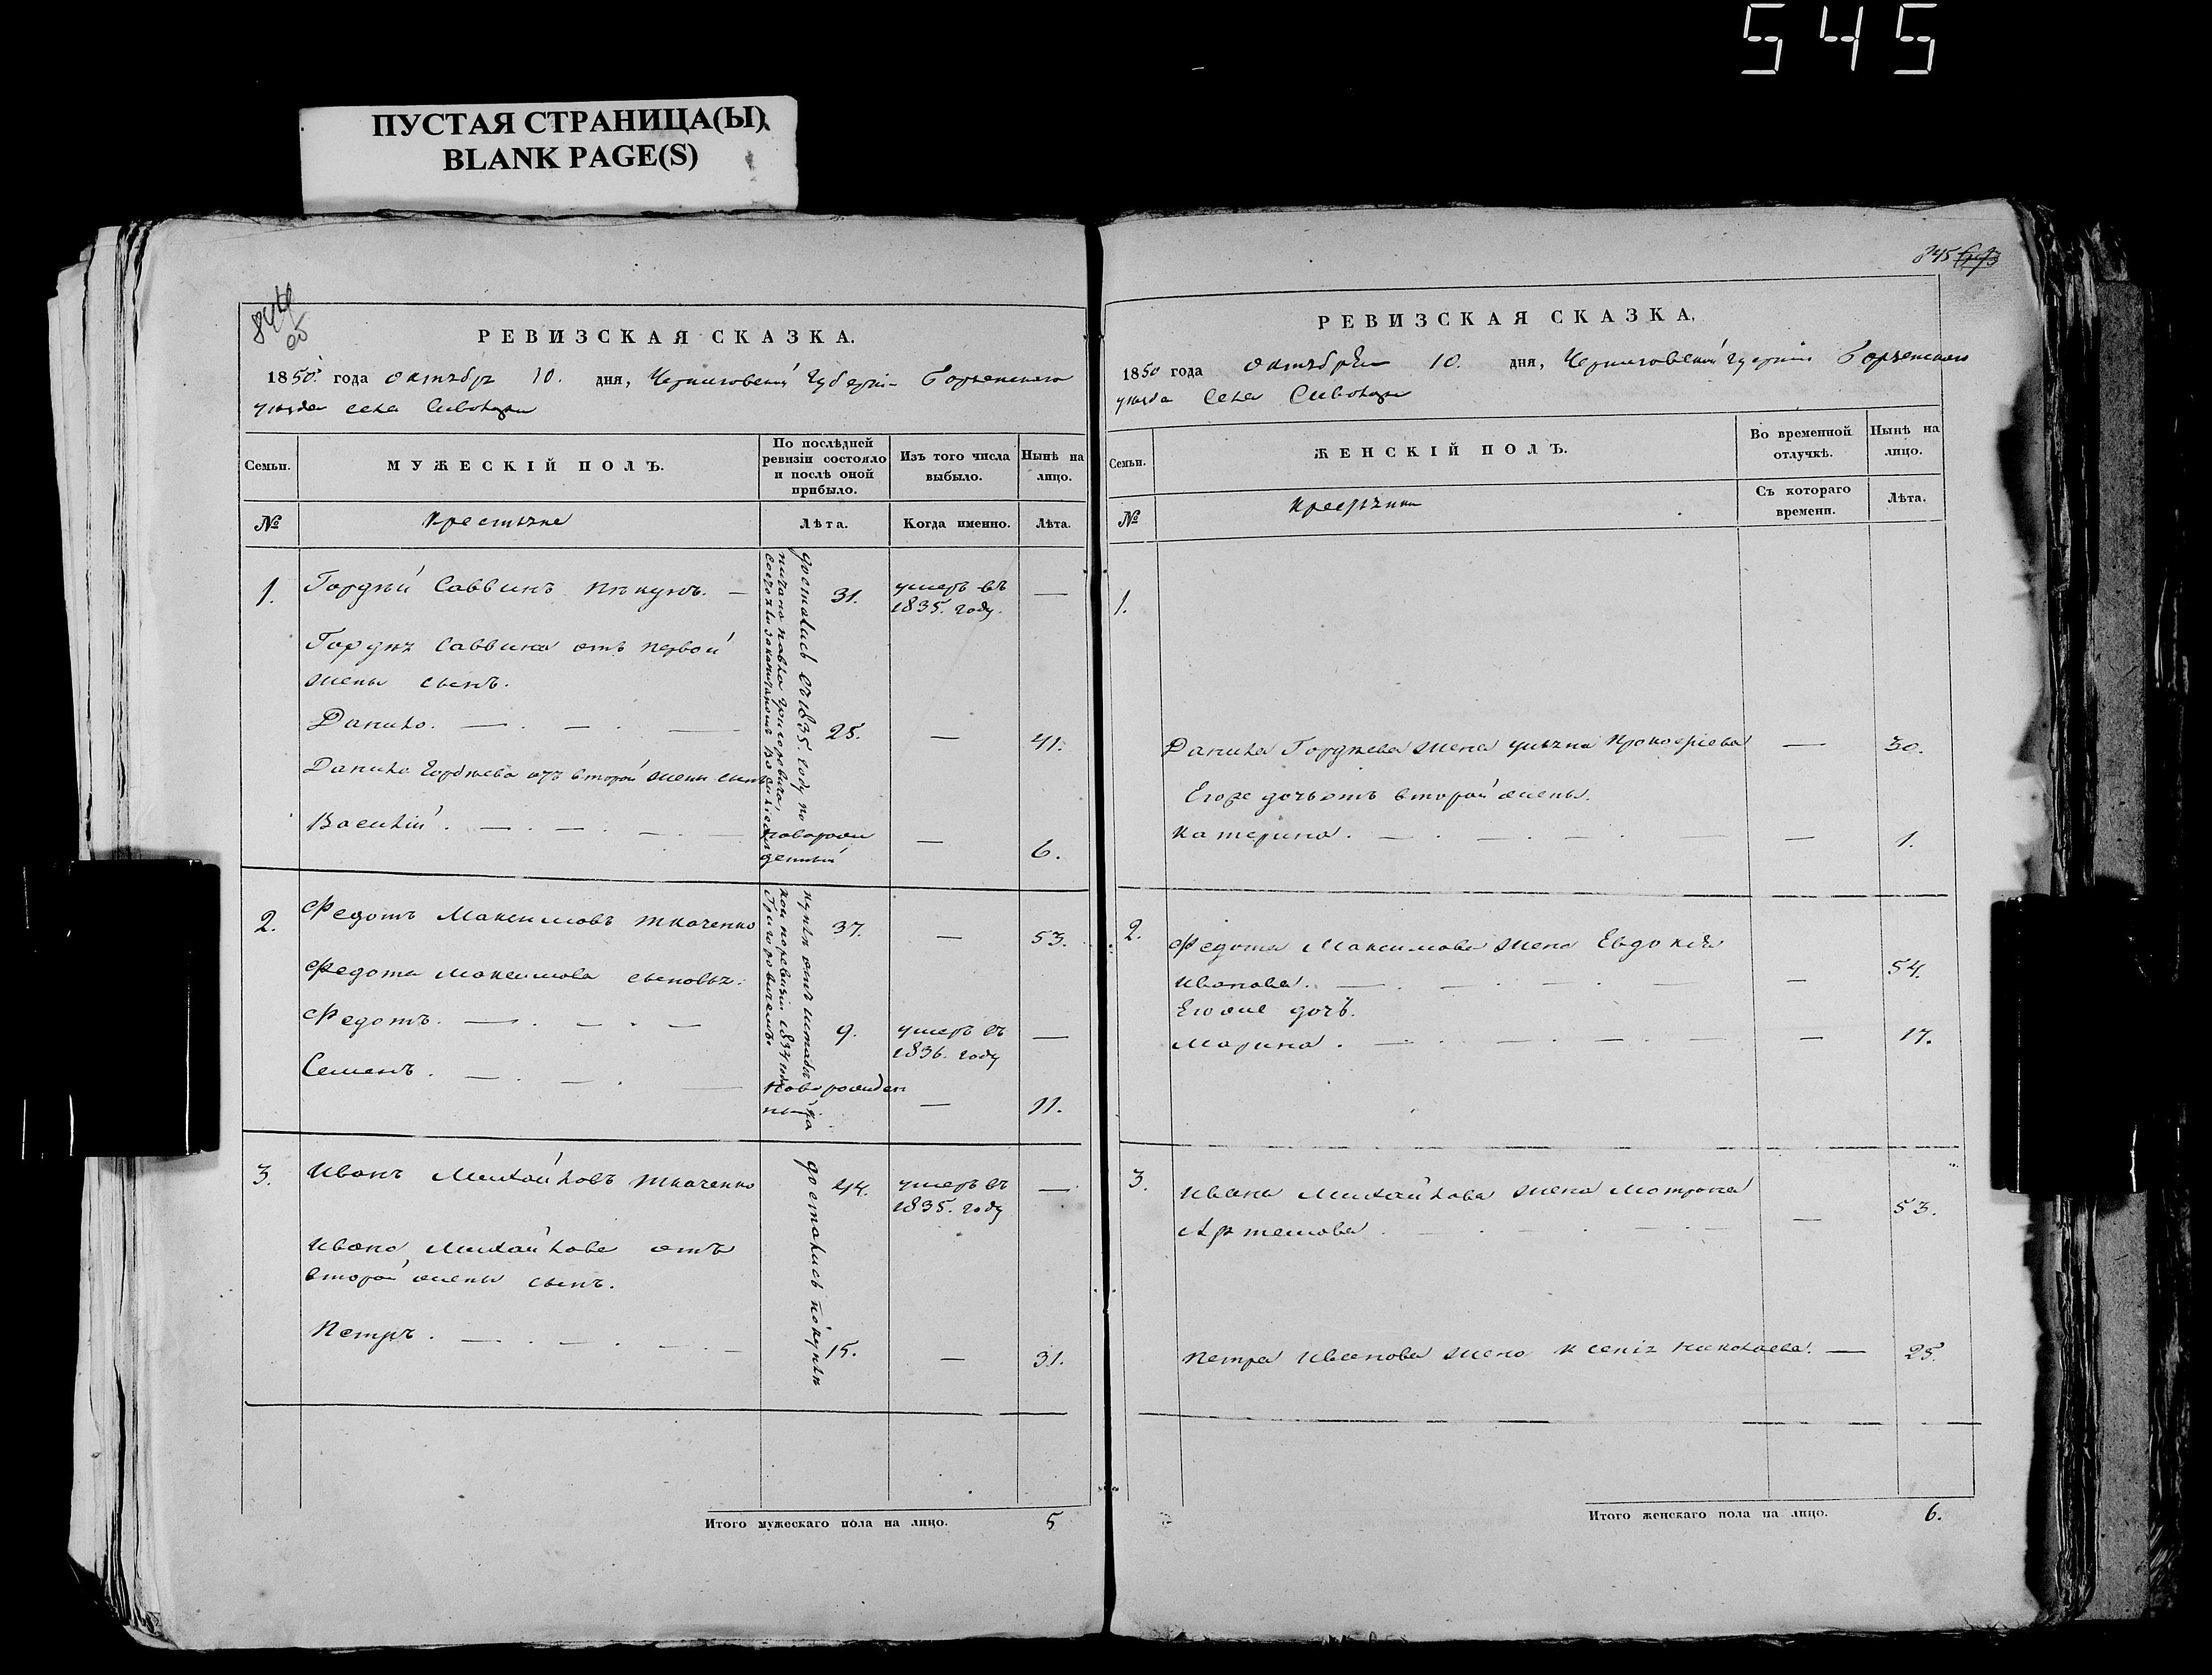 545
ПУСТАЯ СТРАНИЦА(Ы)
BLANK PAGE(S)
844
об
РЕВИЗСКАЯ СКАЗКА.
1850. года октября 10. дня, Черниговской Губерніи Борзенского
уезда села Сиволожи
Семьи.
МУЖЕСКІЙ ПОЛЪ.
По послѣдней ревизіи состояло и послѣ оной прибыло.
Изъ того числа выбыло.
Нынѣ на лицо.
№
Крестьяне
Лѣта.
Когда именно.
Лѣта.
1. Гордѣй Саввинъ 31. умеръ въ 1835. году. —
Гордѣя Саввина отъ первой
жены сынъ.
Данило. — . — . — 25. — 41.
Данила Гордѣева отъ второй жены сынъ
Василій . — . — . — новорож
денный — 6.
достались съ 1835. году по
2. Федотъ Максимовъ Ткаченко 37. — 53.
Федота Максимова сыновья:
Федотъ. — . — . — 9. умеръ въ 1836. году —
Семенъ . — . — . — новорожден
ный — 11.
3. Иванъ Михайловъ Ткаченко 44. умеръ въ 1835. году —
Ивана Михайлова отъ
второй жены сынъ.
Петръ . — . — . — 15. — 31.
достались
Итого мужескаго пола на лицо. 5
845
РЕВИЗСКАЯ СКАЗКА.
1850 года октября 10. дня, Черниговской губерніи Борзенского
уезда Села Сиволожи
Семьи.
ЖЕНСКІЙ ПОЛЪ.
Во временной отлучкѣ.
Нынѣ на лицо.
№
Крестьянки
Съ котораго времени.
Лѣта.
1.
Данила Гордѣева жена Ульяна Прокофіева — 30.
Егоже дочь отъ второй жены.
Катерина . — . — . — — 1.
2. Федота Максимова жена Евдокія
Иванова. — . — . — — 54.
Егоже дочь.
Марина . — . — . — — 17.
3. Ивана Михайлова жена Мотрона
Артемова — 53.
Петра Иванова жена Ксенія Николаева. — 25.
Итого женскаго пола на лицо. 6.